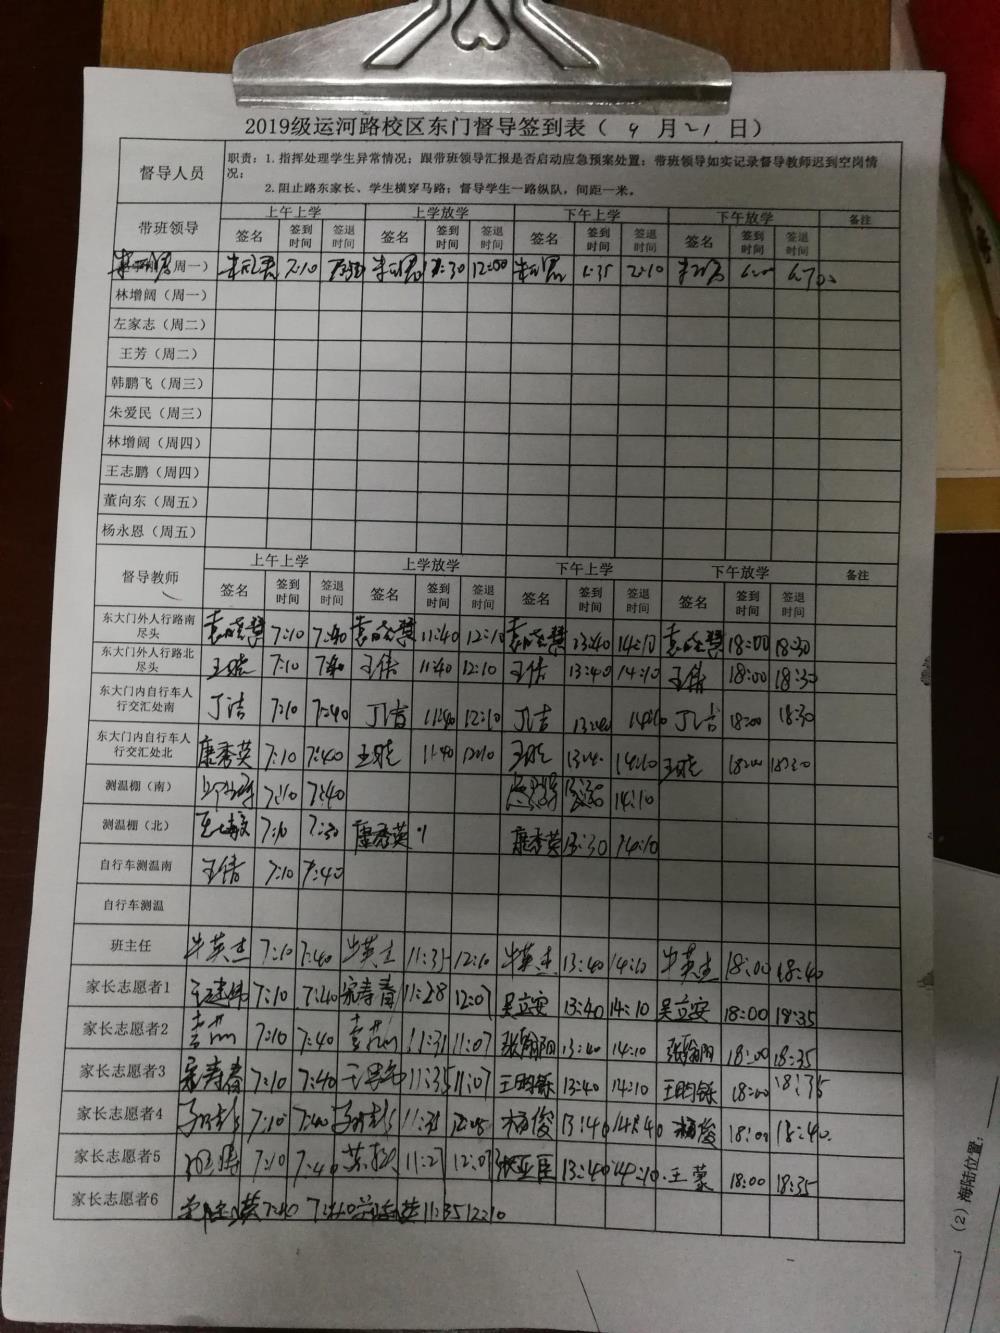 2019级运河路校区东门督导签到表（ 9 月 21 日）
督导人员 职责：1.指挥处理学生异常情况；跟带班领导汇报是否启动应急预案处置；带班领导如实记录督导教师迟到空岗情况；
2.阻止路东家长、学生横穿马路；督导学生一路纵队，间距一米。
带班领导 上午上学 上学放学 下午上学 下午放学 备注
签名 签到时间 签退时间 签名 签到时间 签退时间 签名 签到时间 签退时间 签名 签到时间 签退时间
（周一） 7:10 12:00 2:10
林增阔（周一）
左家志（周二）
王芳（周二）
韩鹏飞（周三）
朱爱民（周三）
林增阔（周四）
王志鹏（周四）
董向东（周五）
杨永恩（周五）
督导教师 上午上学 上学放学 下午上学 下午放学 备注
签名 签到时间 签退时间 签名 签到时间 签退时间 签名 签到时间 签退时间 签名 签到时间 签退时间
东大门外人行路南尽头 7:10 7:40 11:40 12:10 13:40 14:10 18:00 18:30
东大门外人行路北尽头 王晓 7:10 7:40 王倩 11:40 12:10 王倩 13:40 14:10 王倩 18:00 18:30
东大门内自行车人行交汇处南 丁洁 7:10 7:40 丁洁 11:40 12:10 丁洁 13:40 14:10 丁洁 18:00 18:30
东大门内自行车人行交汇处北 康秀英 7:10 7:40 王晓 11:40 12:10 王晓 13:40 14:10 王晓 18:00 18:30
测温棚（南） 7:10 7:40 14:10
测温棚（北） 7:10 7:30 康秀英 康秀英 13:30 14:10
自行车测温南 王倩 7:10 7:40
自行车测温
班主任 牛英杰 7:10 7:40 牛英杰 11:35 12:10 牛英杰 13:40 14:10 牛英杰 18:00 18:40
家长志愿者1 王建伟 7:10 7:40 宋寿春 11:28 12:07 吴立安 13:40 14:10 吴立安 18:00 18:35
家长志愿者2 7:10 7:40 11:31 11:07 张翰阳 13:40 14:10 张翰阳 18:00 18:35
家长志愿者3 宋寿春 7:10 7:40 11:35 11:07 王昀铄 13:40 14:10 王昀铄 18:00 18:35
家长志愿者4 7:10 7:40 11:31 12:08 杨俊 13:40 杨俊 18:00 18:40
家长志愿者5 7:10 7:40 11:27 12:07 13:40 14:10 王蒙 18:00 18:35
家长志愿者6 7:40 7:40 11:35 12:10
（2）海陆位置：